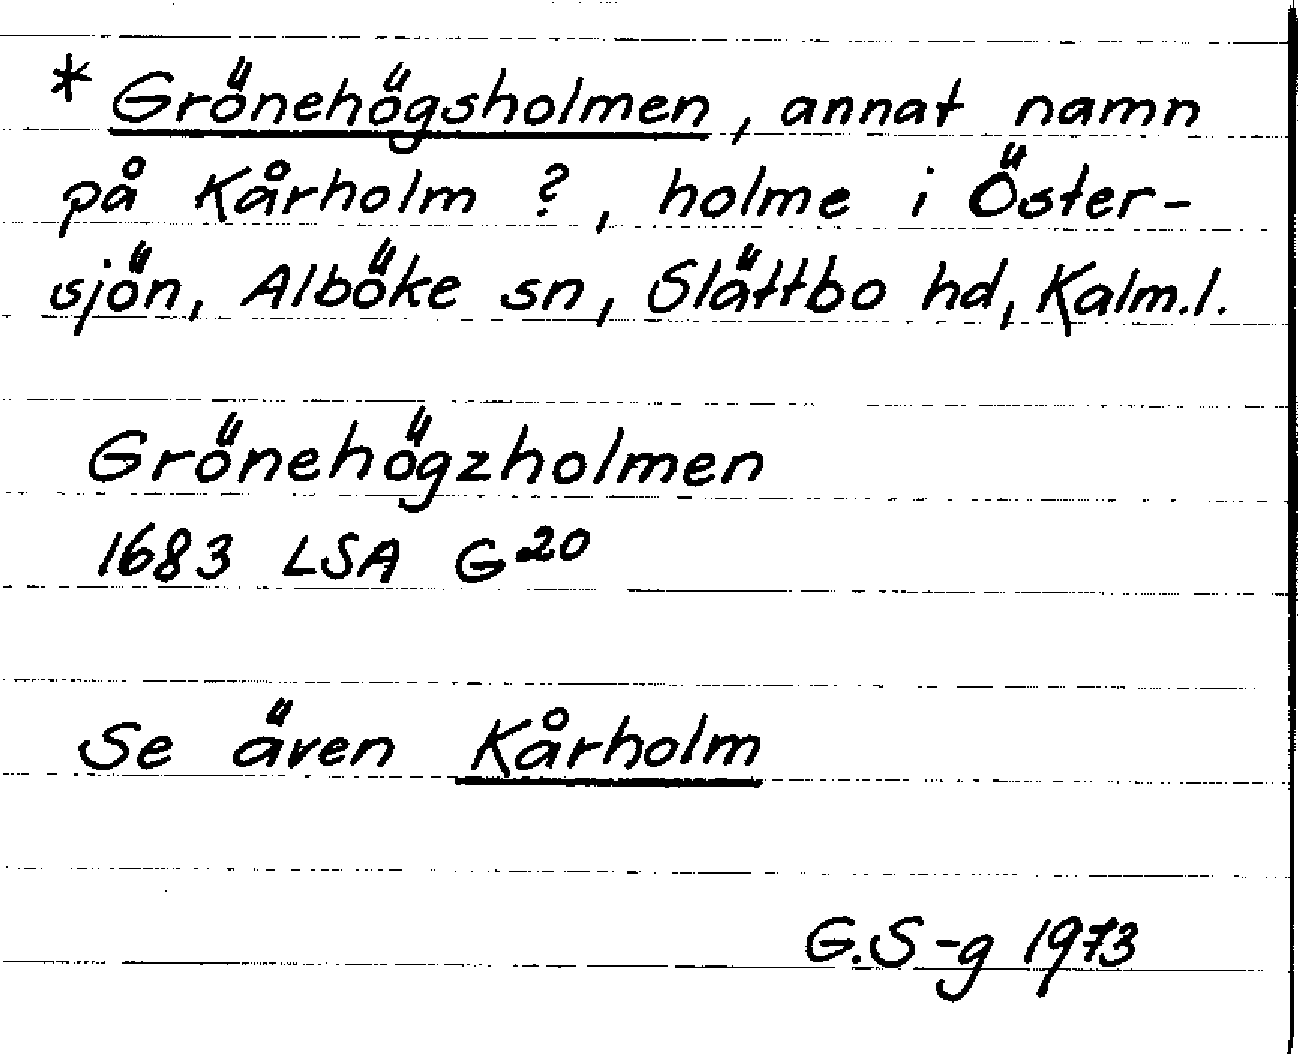 * Grönehögsholmen, annat namn
på Kårholm ?, holme i Öster-
sjön, Alböke sn, Slättbo hd, Kalm.l.
Grönehögzholmen
1683 LSA G20
Se även Kårholm
G.S-g 1973